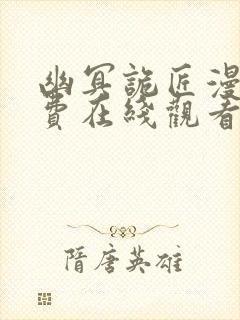 幽冥詭匠漫
費在綫觀看
隋唐英雄